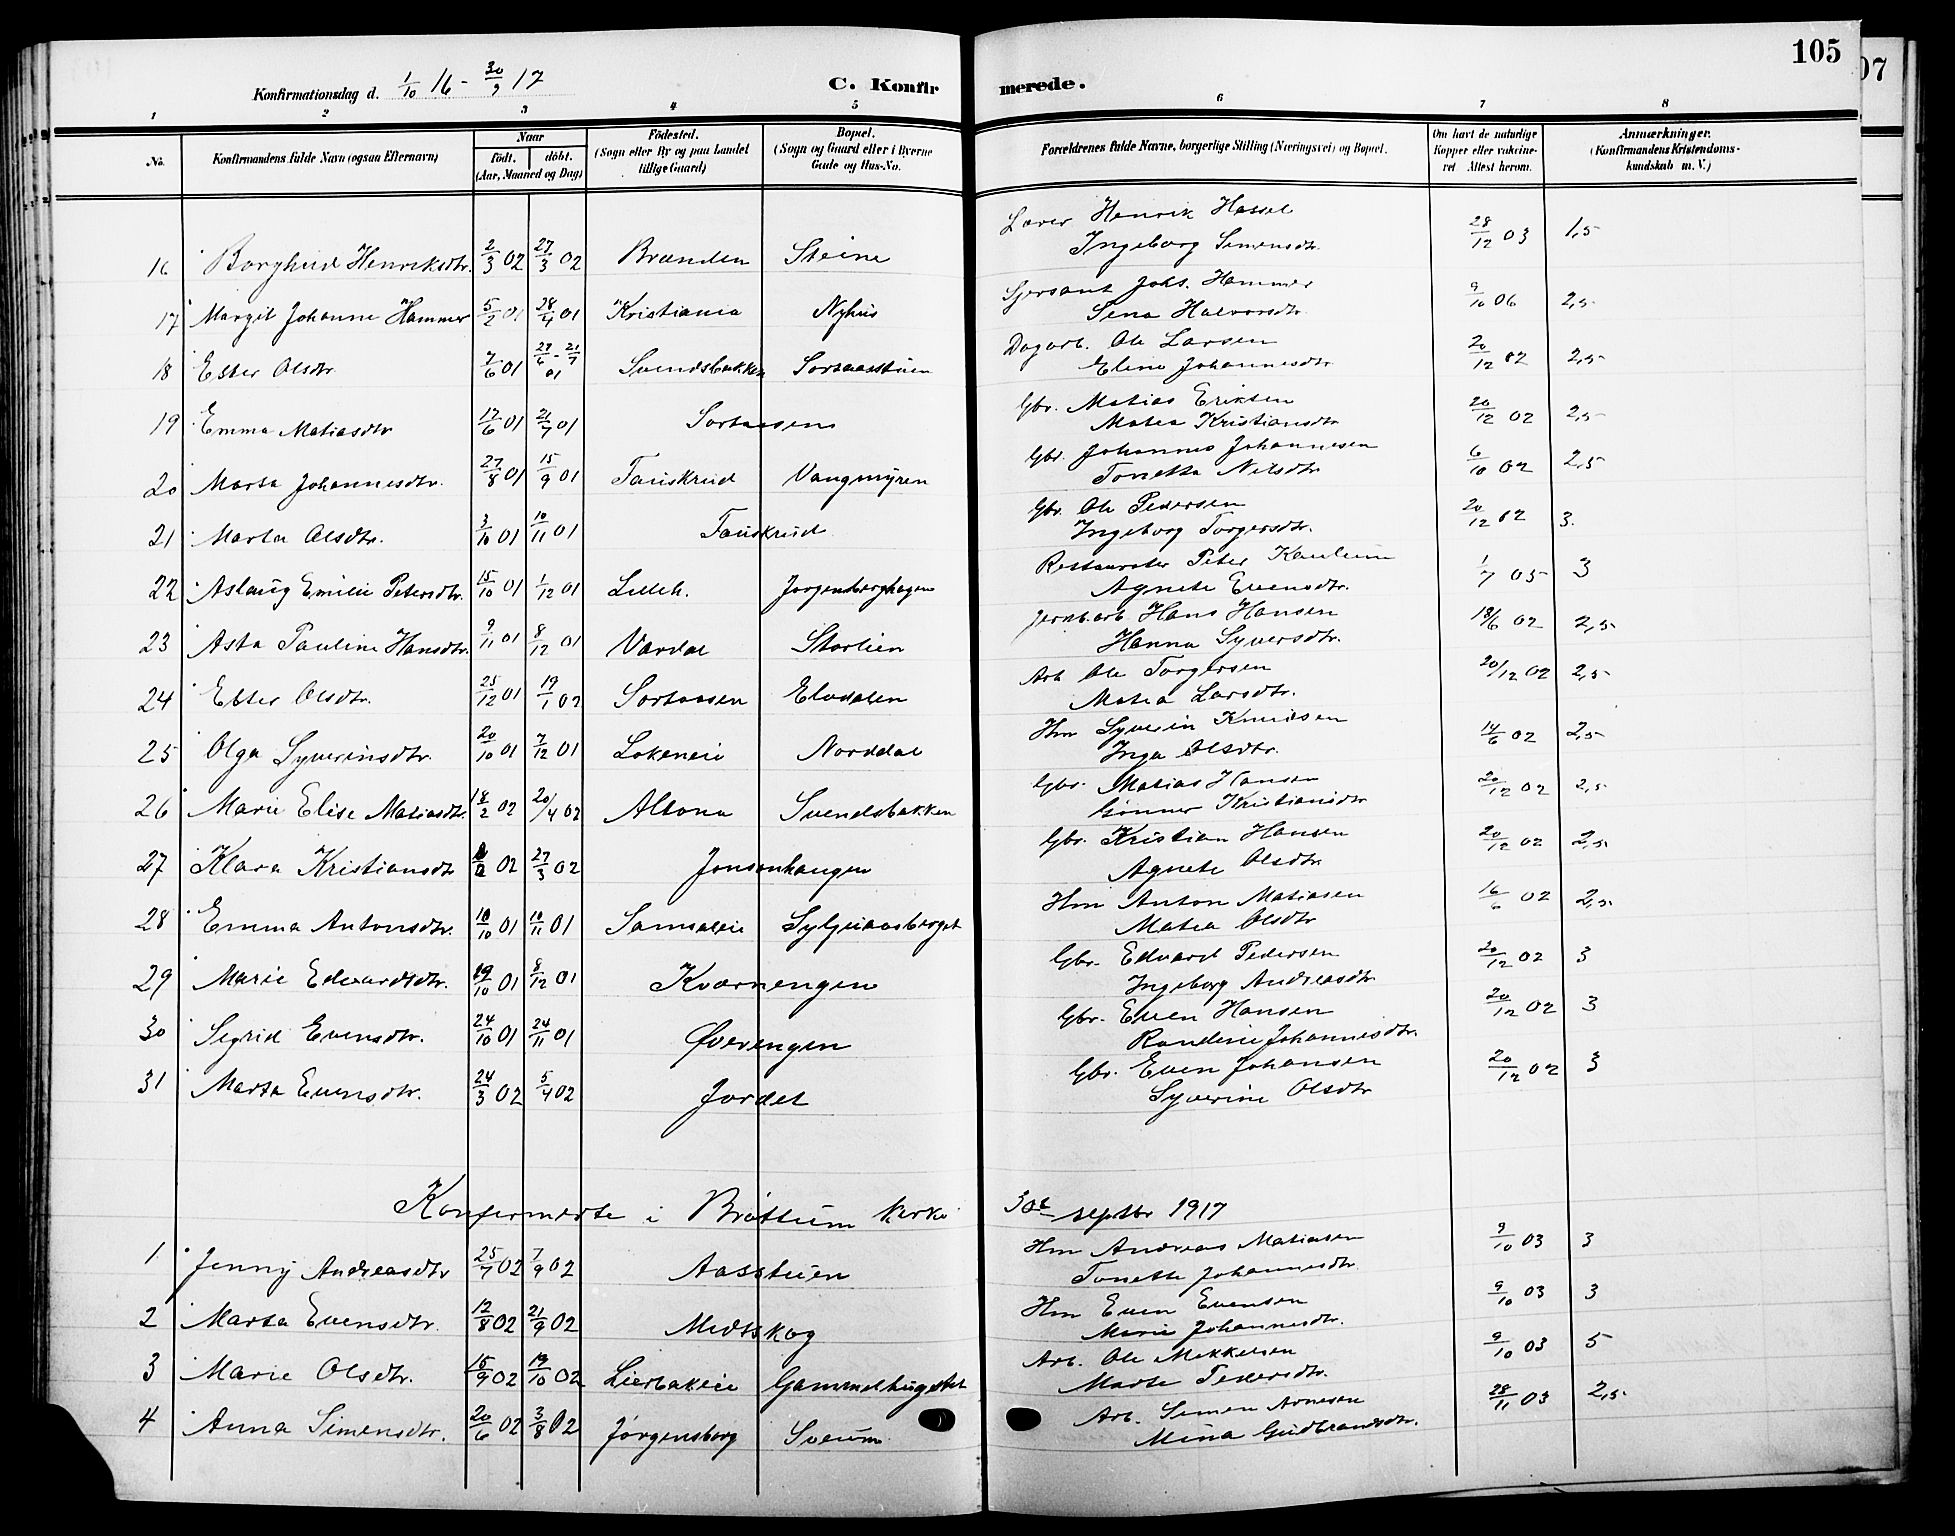 105
07
Konfirmationsdag d. 1/10 16 - 30/9 17
C. Konfir merede.
1 2 3 4 5 6 7 8
No.
Konfirmandens fulde Navn (ogsaa Efternavn)
Naar
født. døbt.
(Aar, Maaned og Dag)
Födested.
(Sogn eller By og paa Landet
tillige Gaard)
Bopæl.
(Sogn og Gaard eller i Byerne
Gade og Hus-No.
Forældrenes fulde Navne, borgerlige Stilling (Næringsvei) og Bopæl.
Om havt de naturlige
Kopper eller vakcine-
ret Attest herom.
Anmærkninger.
(Konfirmandens Kristendoms-
kundskab m. V.)
16 Borghild Henriksdtr. 2/3 02 27/3 02 Brænden Steine Lærer Henrik Hassel 28/12 03 1,5
Ingeborg Simensdtr.
17 Margit Johanne Hammer 5/2 01 28/4 01 Kristiania Nyhus Sjersant Johs. Hammer 9/10 06 2,5
Sena Halvorsdtr.
18 Ester Olsdtr. 7/6 01 27/6 - 21/7 01 Svendsbakken Sortaasstuen Dagarb. Ole Larsen 20/12 02 2,5
Eline Johannesdtr.
19 Emma Matiasdtr 17/6 01 21/7 01 Sortaasen Gbr. Matias Eriksen 20/12 02 2,5
Matea Kristiansdtr
20 Marta Johannesdtr. 27/8 01 15/9 01 Tauskrud Vangmyren Gbr. Johannes Johannesen 6/10 02 2,5
Tonetta Nilsdtr
21 Marta Olsdtr. 3/10 01 10/11 01 Tauskrud Gbr. Ole Pedersen 20/12 02 3.
Ingeborg Torgersdtr.
22 Aslaug Emilie Petersdtr. 15/10 01 1/12 01 Lilleh. Jørgensberghagen Restauratør Peter 1/7 05 3
Agnete Evensdtr.
23 Asta Pauline Hansdtr. 9/11 01 8/12 01 Vardal Storlien Jernb.arb Hans Hansen 18/6 02 2,5
Hanna Syversdtr.
24 Ester Olsdtr. 25/12 01 19/1 02 Sortaasen Elvdalen Arb Ole Torgersen 20/12 02 2,5
Matea Larsdtr.
25 Olga Syverinsdtr. 20/10 01 7/12 01 Lokeneie Norddal Hm Syverin Knudsen 14/6 02 2,5
Inga Olsdtr.
26 Marie Elise Matiasdtr. 18/2 02 20/4 02 Altona Svendsbakken Gbr. Matias Hansen 20/12 02 2,5
Gunner Kristiansdtr
27 Klara Kristiansdtr 02 27/3 02 Jonsonhaugen Gbr. Kristian Hansen 20/12 02 2,5
Agnete Olsdtr
28 Emma Antonsdtr. 10/10 01 10/11 01 Samsaleie Syljuaasberget Hm Anton Matiasen 16/6 02 2,5
Matea Olsdtr
29 Marie Edvardsdtr. 19/10 01 8/12 01 Kvarnengen Gbr. Edvard Pedersen 20/12 02 3
Ingeborg Andreasdtr
30 Sigrid Evensdtr. 24/10 01 24/11 01 Øverengen Gbr. Even Hansen 20/12 02 3
Randine Johannesdtr.
31 Marta Evensdtr. 24/3 02 5/4 02 Jordet Gbr. Even Johansen 20/12 02 3
Syverine Olsdtr
Konfirmerte i Brøttum kirke 30te septbr 1917
1 Jenny Andreasdtr 25/7 02 7/9 02 Aasstuen Hm Andreas Matiasen 9/10 03 3
Tonette Johannesdtr
2 Marta Evensdtr. 12/8 02 21/9 02 Midtskog Hm Even Evensen 9/10 03 3
Marie Johannesdtr.
3 Marie Olsdtr. 15/9 02 19/10 02 Lierbakeie Gammelhugstet Arb. Ole Mikkelsen 9/10 03 5
Marte Pedersdtr.
4 Anna Simensdtr. 20/6 02 3/8 02 Jørgensborg Sveum Arb. Simen Arnesen 28/11 03 2,5
Mina Gudbrandsdtr.